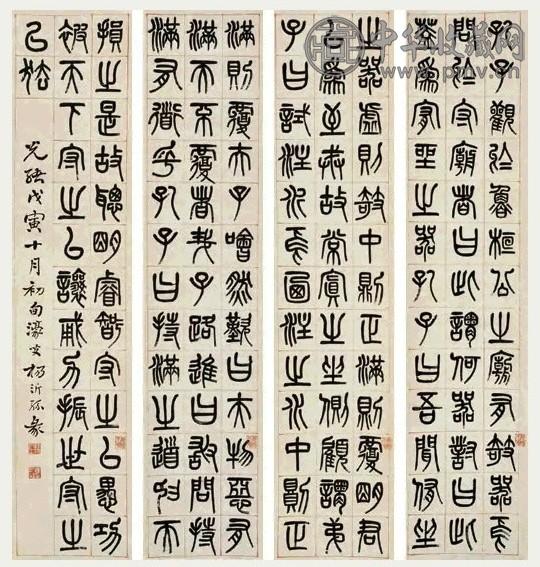 孔子觀於魯桓公之廟有欹器焉
問於守廟者曰此謂何器對曰此
蓋為宥坐之器孔子曰吾聞侑坐
之器虛則欹中則正滿則覆明君
以為至戒故常寘之坐側顧謂弟
子曰試注水焉廼注之水中則正
滿則覆夫子喟然歎曰夫物惡有
滿而不覆者哉子路進曰敢問持
滿有道乎孔子曰持滿之道挹而
損之是故聰明睿智守之以愚功
被天下守之以讓勇力振世守之
以怯
光緒戊寅十月初旬濠叟楊沂孫篆
中华收藏网
www.pmv.cn